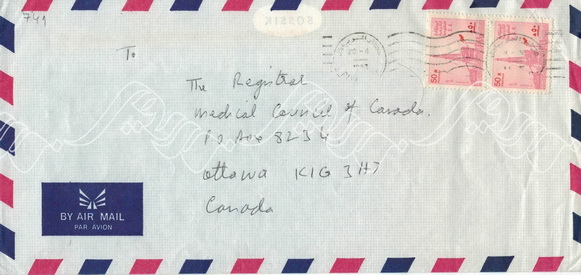 749
BOSSIK
To
The Registrar
Medical Council of Canada.
P O Box 8234
Ottawa K1G 3H7
Canada
BY AIR MAIL
PAR AVION
50
50